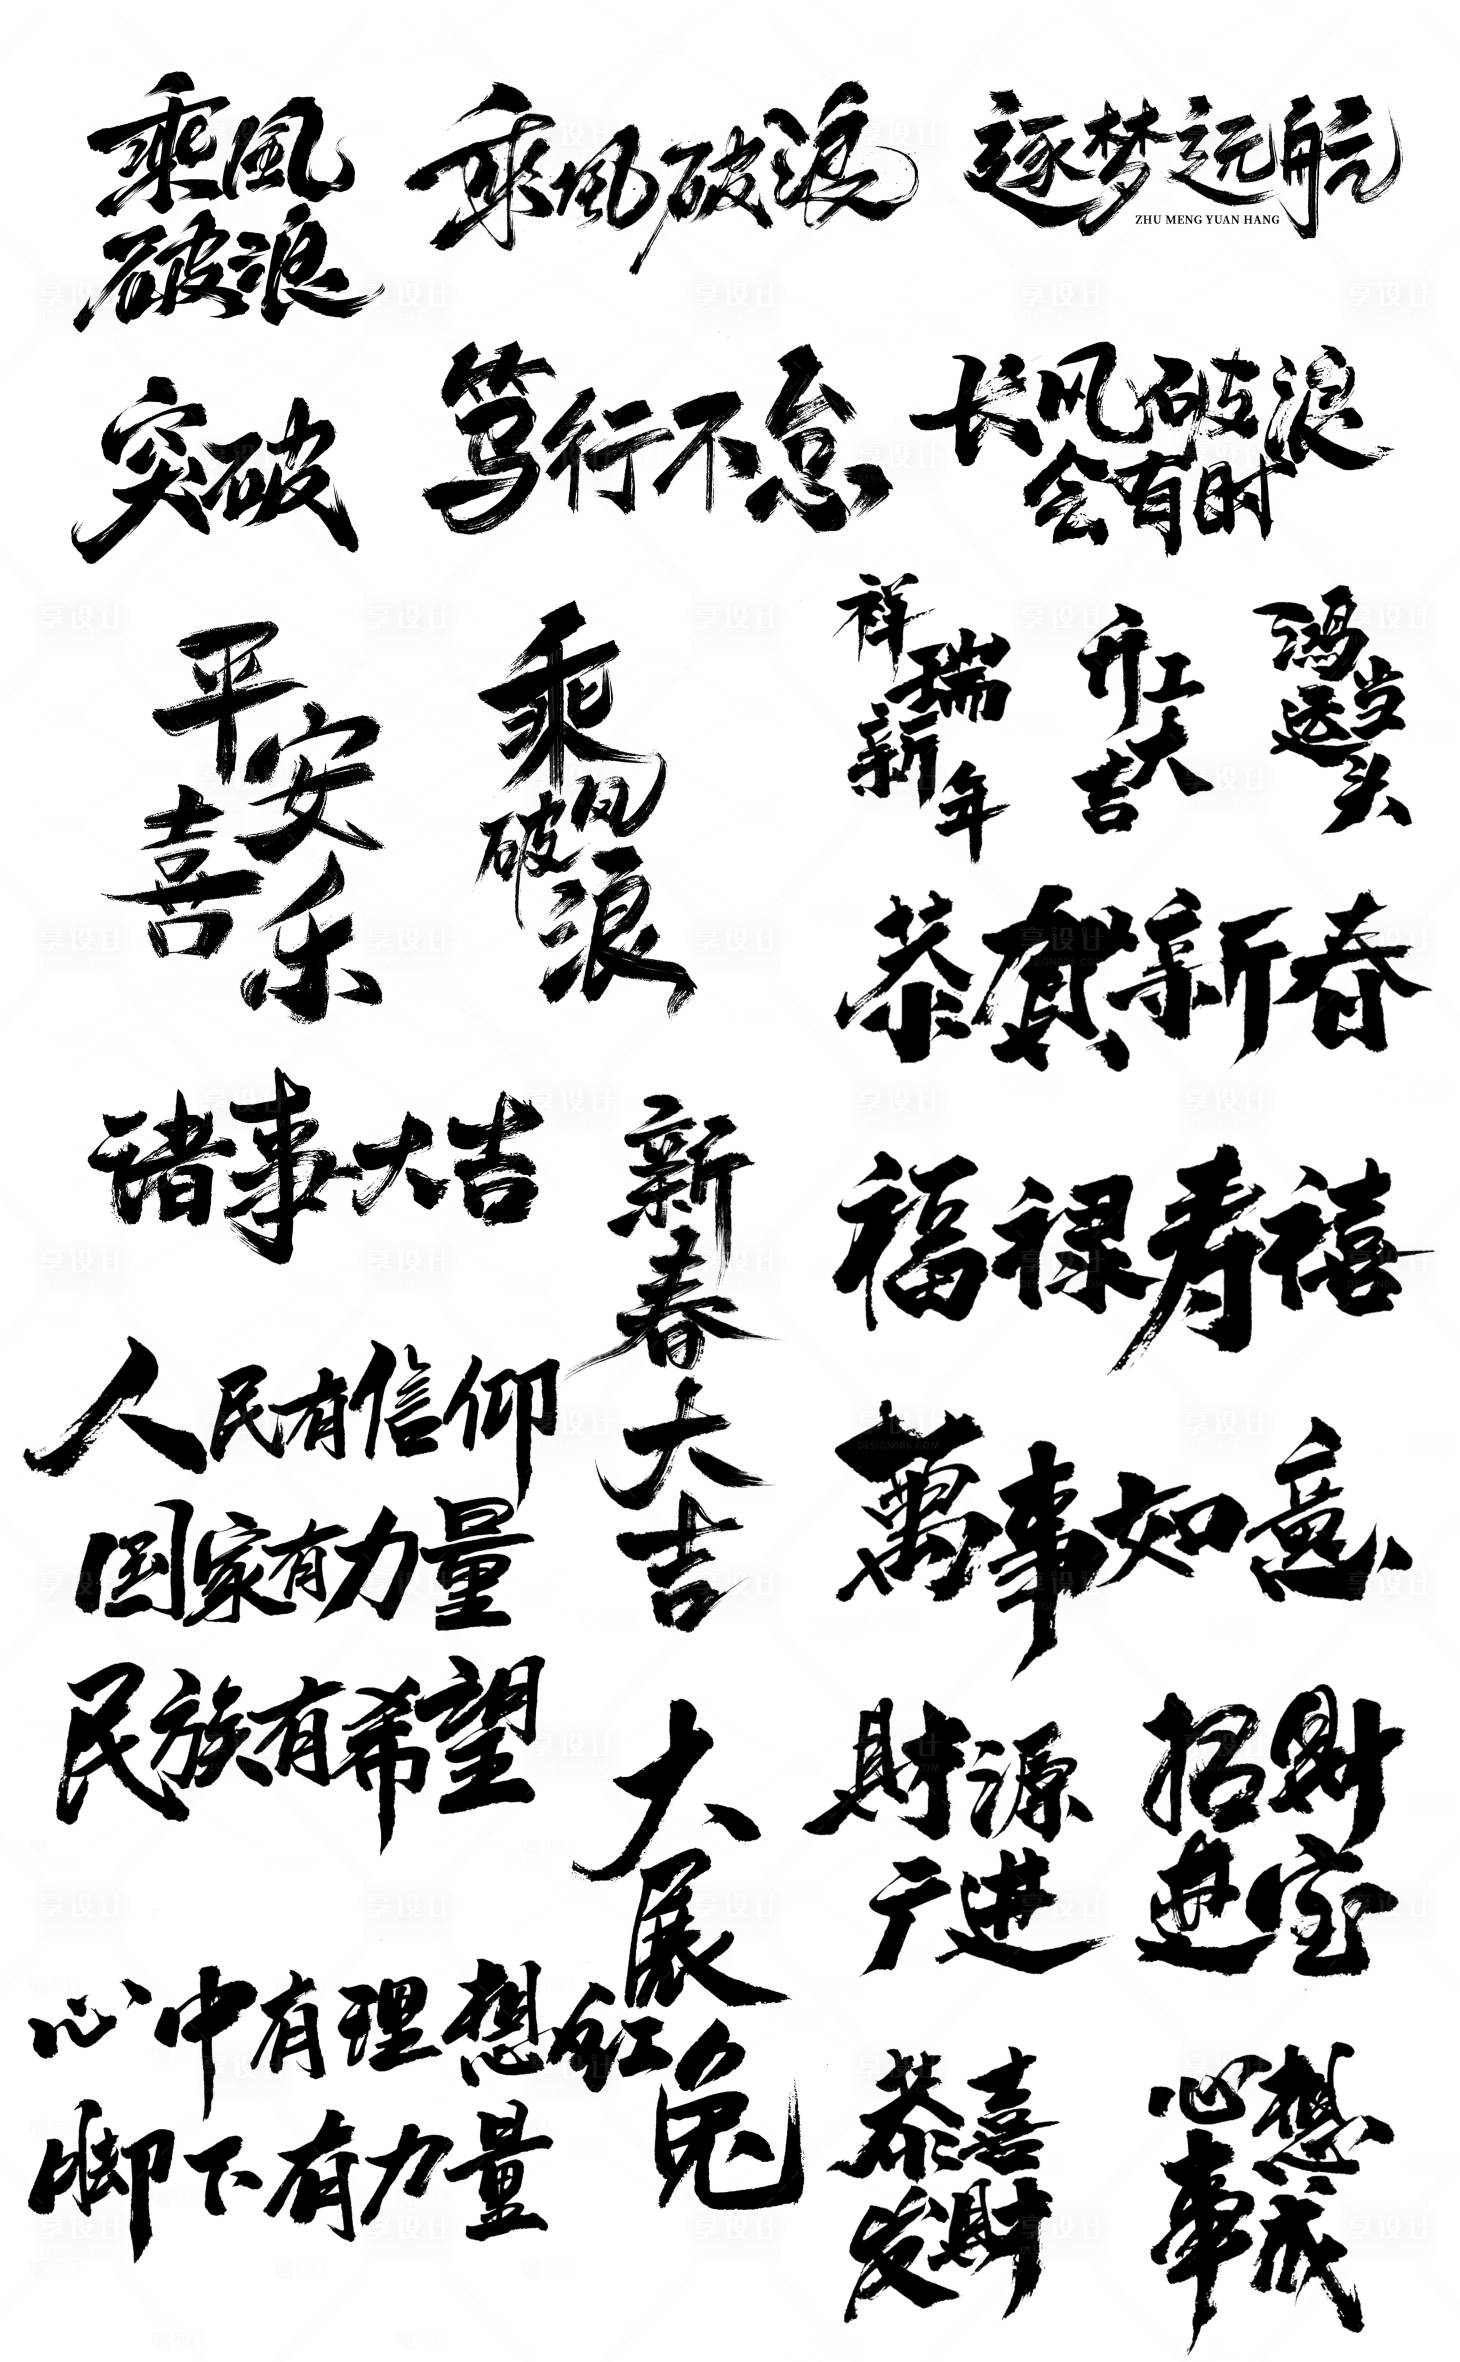 乘風
破浪
乘風破浪
逐梦远航
ZHU MENG YUAN HANG
突破
笃行不怠
长风破浪
会有时
平安
喜乐
乘风
破浪
祥瑞
新年
开工
大吉
鸿运
当头
恭贺新春
诸事大吉
新春大吉
福禄寿禧
人民有信仰
国家有力量
民族有希望
萬事如意
大展宏兔
財源
广进
招財
进宝
心中有理想
脚下有力量
恭喜
发財
心想
事成
享设计
DESIGN006.COM